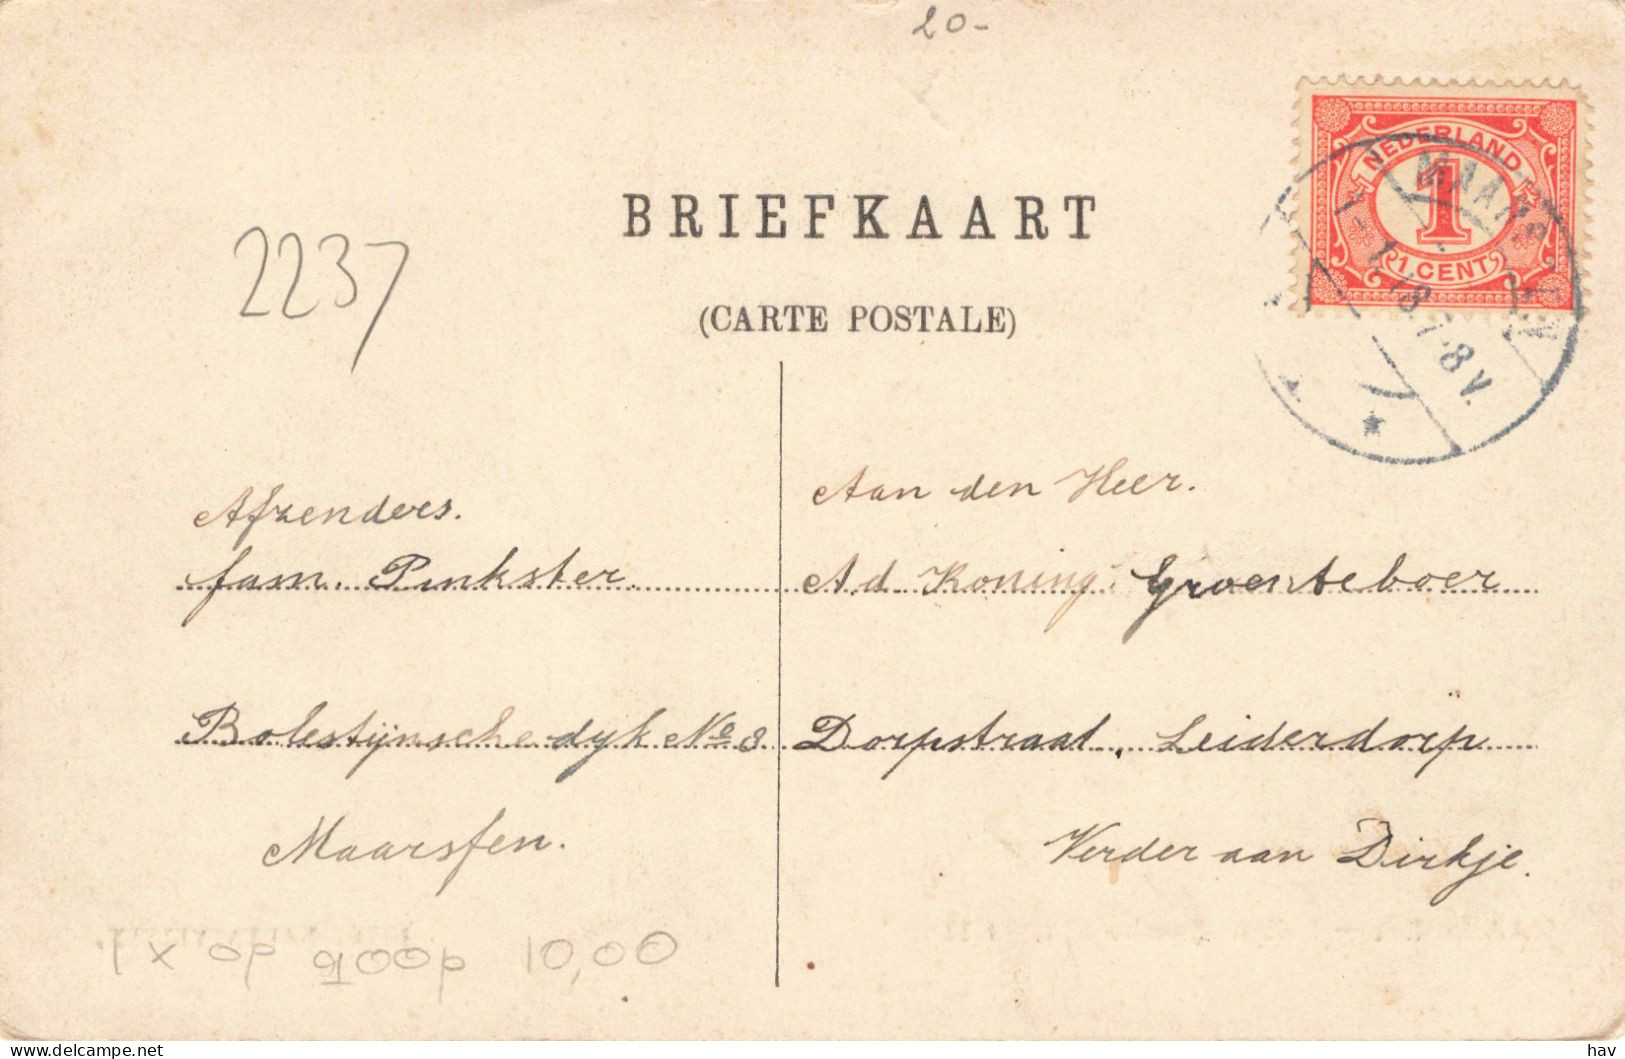 20-
NEDERLAND
1
1 CENT
MAARS
7-8 V.
BRIEFKAART
(CARTE POSTALE)
2237
Afzenders.
fam. Pinkster.
Bolestijnsche dyk No 8
Maarsfen.
Aan den Heer.
Ad Koning. Groenteboer
Dorpstraat, Leiderdorp
Verder aan Dirkje.
1 x op 10,00
www.delcampe.net
hav